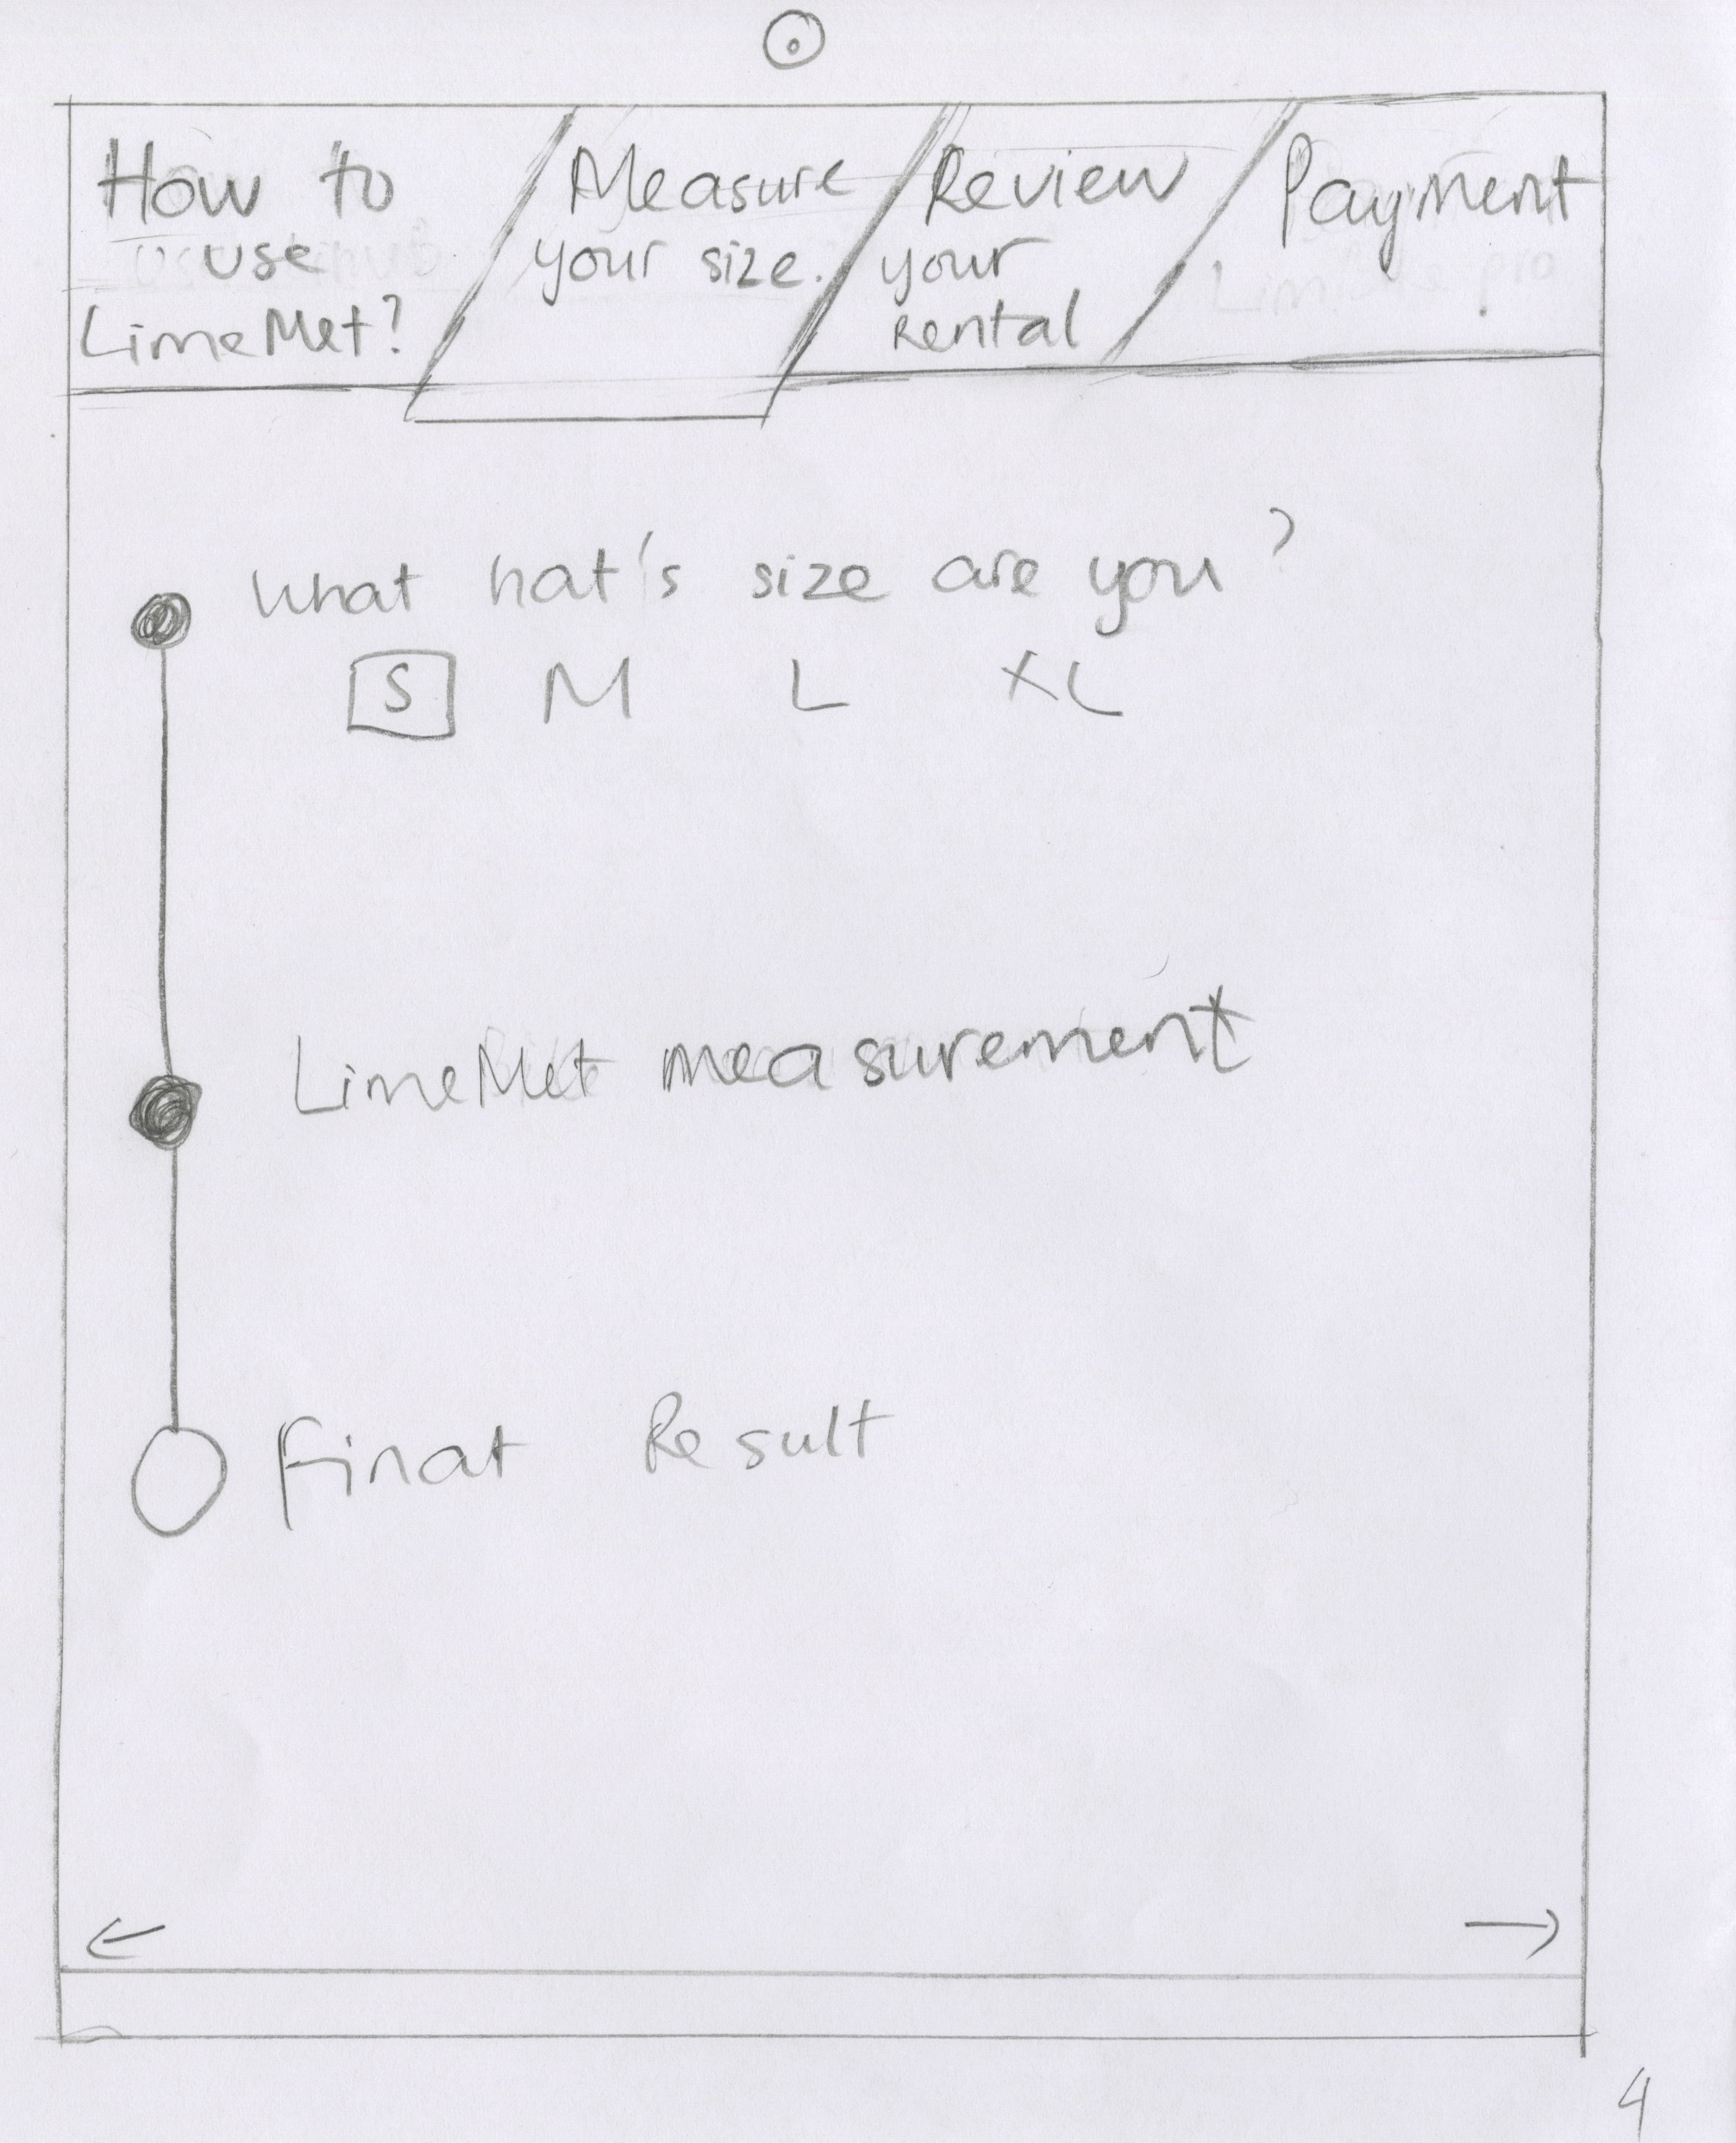 How to
use
LimeMet?
Measure
your size.
Review
your
Rental
Payment
What hat's size are you?
S M L XL
LimeMet measurement
Final Result
4